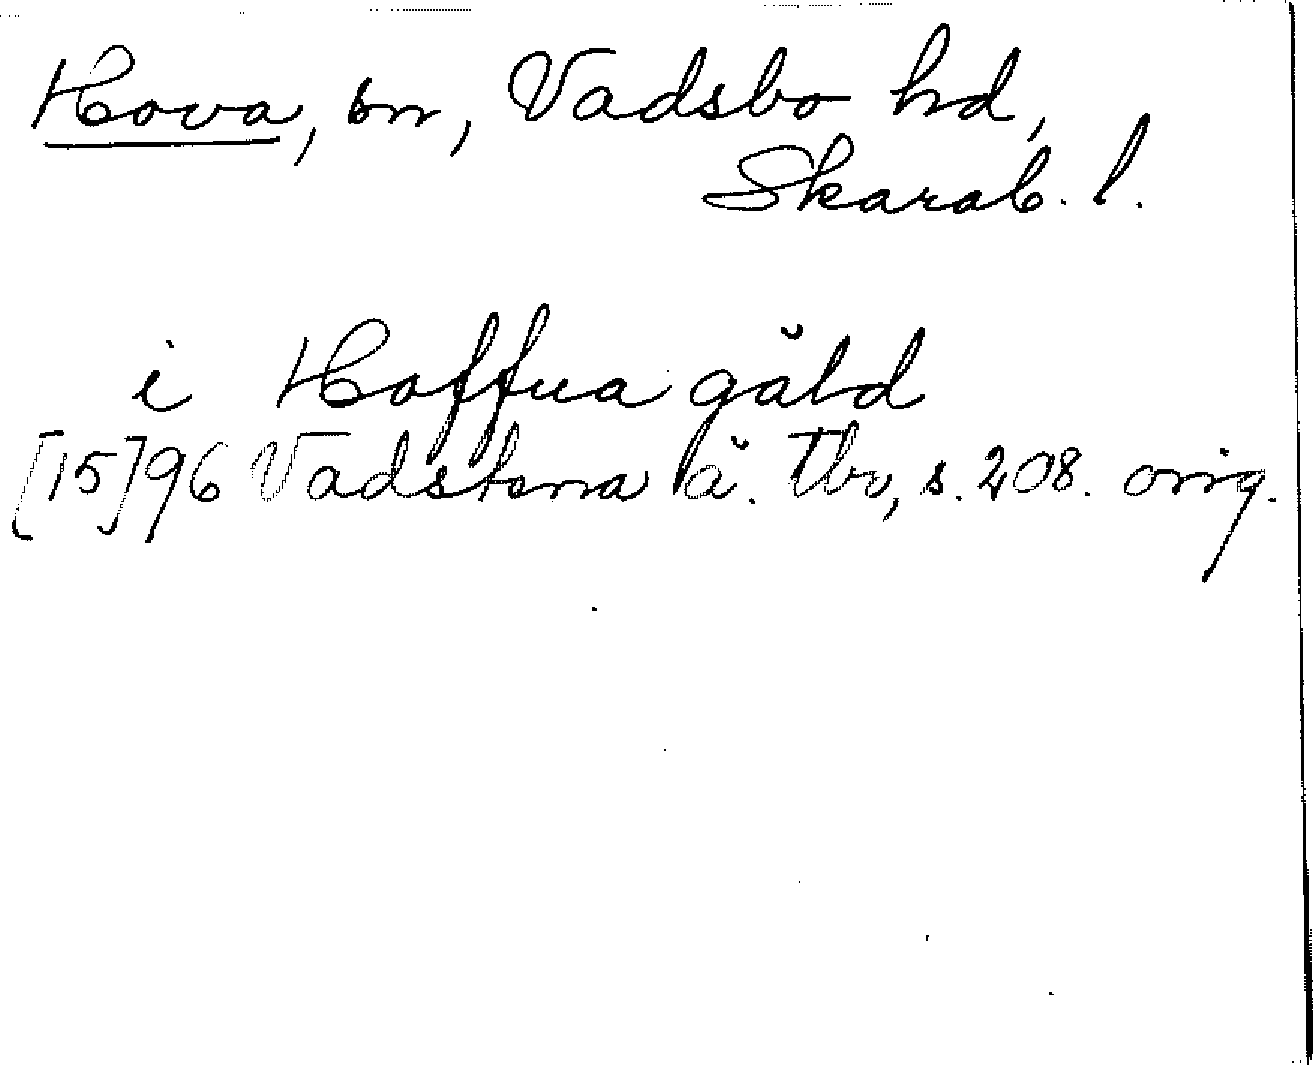 Hova, sn, Vadsbo hd,
Skarab. l.
i Hoffua gäld
[15]96 Vadstena lä. Tbr, s. 208. orig.